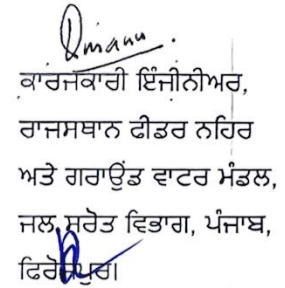 ਕਾਰਜਕਾਰੀ ਇੰਜੀਨੀਅਰ,
ਰਾਜਸਥਾਨ ਫੀਡਰ ਨਹਿਰ
ਅਤੇ ਗਰਾਊਂਡ ਵਾਟਰ ਮੰਡਲ,
ਜਲ ਸਰੋਤ ਵਿਭਾਗ, ਪੰਜਾਬ,
ਫਿਰੋਜ਼ਪੁਰ।